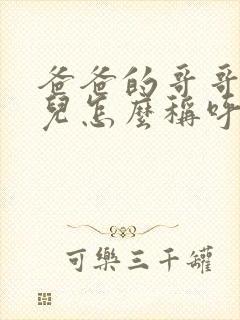 爸爸的哥哥
兒怎麼稱呼
可樂三千罐